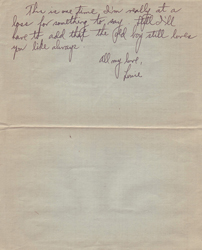 This is one time, I'm really at a
loss for something to say. Still I'll
have to add that the old boy still loves
you like always.
All my love,
Louie